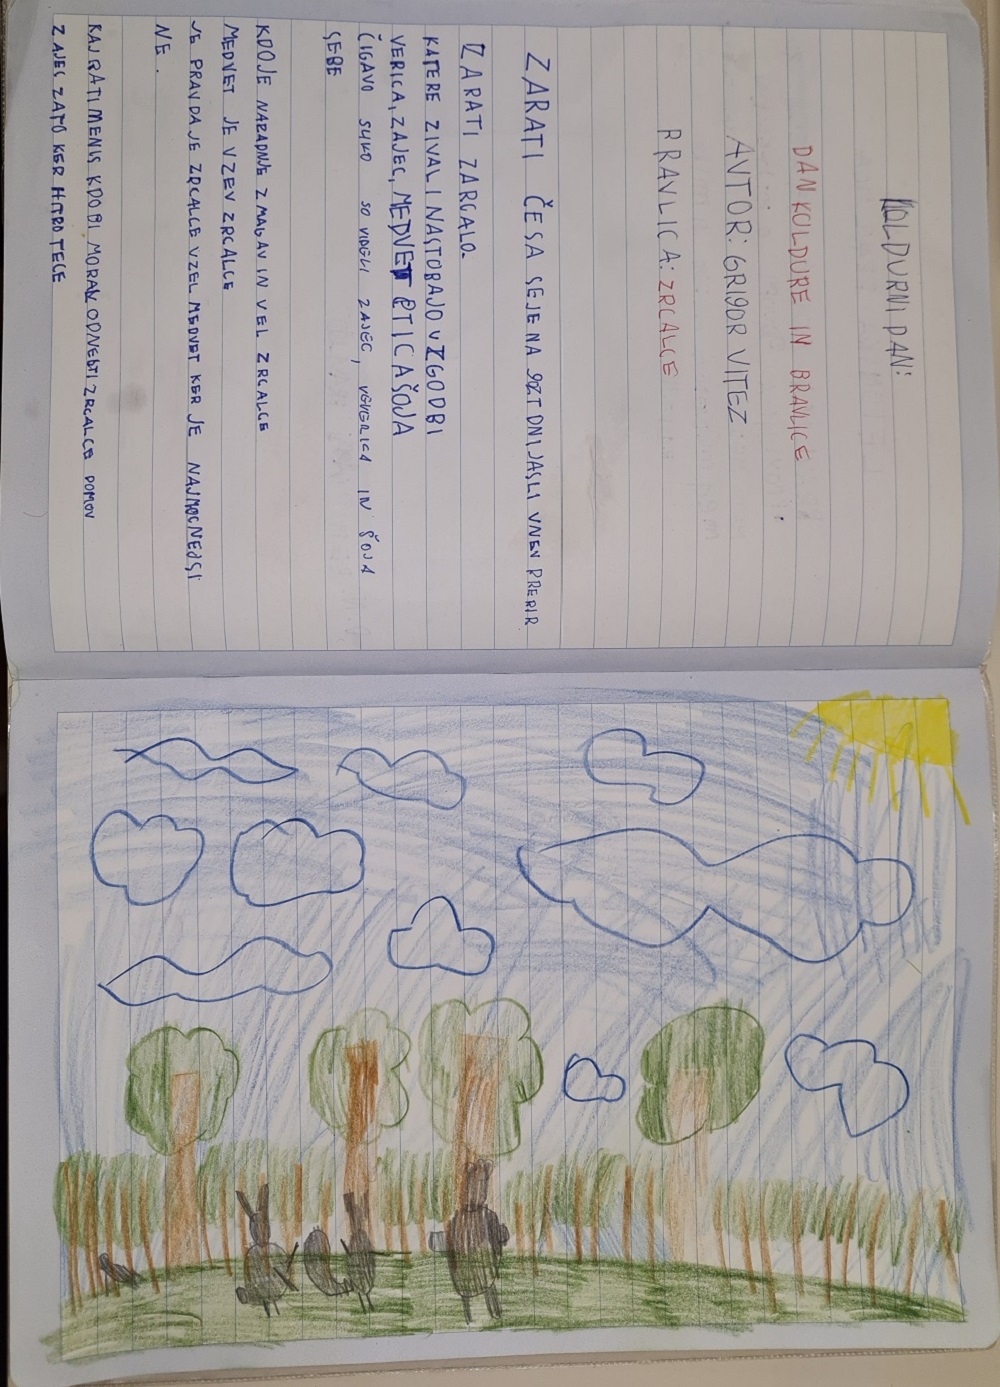 KOLDURNI DAN:
DAN KOLDURE IN BRAVLICE
AVTOR: GRIGOR VITEZ
PRAVLICA: ZRCALCE
ZARATI ČESA SE JE NA DNI JASLI VNEV PREPIR
ZARATI ZARCALO.
KATERE ZIVALI NASTOBAJO V ZGODBI
VERICA, ZAJEC, MEDVET PTICA ŠOJA
ČIGAVO SLIKO SO VIDELI ZAJEC, VEVERICA IN ŠOJA
SEBE
KDO JE NAPADNE ZMAGAV IN VEL ZRCALCE
MEDVET JE VZEV ZRCALCE
JE PRAV DA JE ZRCALCE VZEL MEDVET KER JE NAJMOCNEJSI
NE.
KAJ RATI MENIS KDO BI MORAL ODNESTI ZRCALCE DOMOV
ZAJEC ZATO KER HITRO TECE